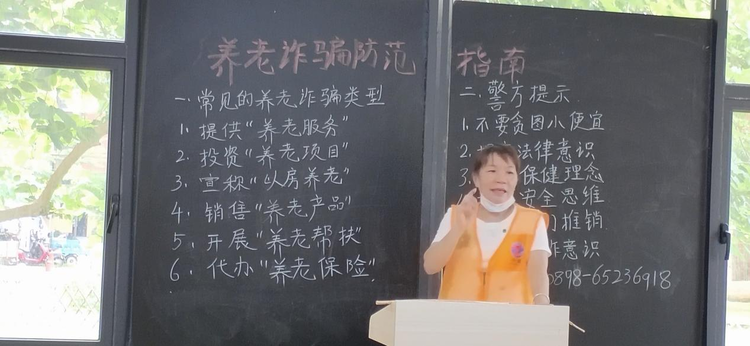 养老诈骗防范指南
一.常见的养老诈骗类型
1.提供"养老服务"
2.投资"养老项目"
3.宣称"以房养老"
4.销售"养老产品"
5.开展"养老帮扶"
6.代办"养老保险".
二.警方提示
1.不要贪图小便宜
2.法律意识
3.保健理念
安全思维
推销
意识
0898-65236918